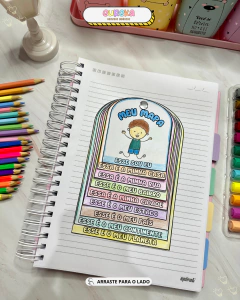 MEU MAPA
ESSE SOU EU
ESSA É A MINHA CASA
ESSA É A MINHA RUA
ESSE É O MEU BAIRRO
ESSA É A MINHA CIDADE
ESSE É O MEU ESTADO
ESSE É O MEU PAÍS
ESSE É O MEU CONTINENTE
ESSE É O MEU PLANETA
ARRASTE PARA O LADO